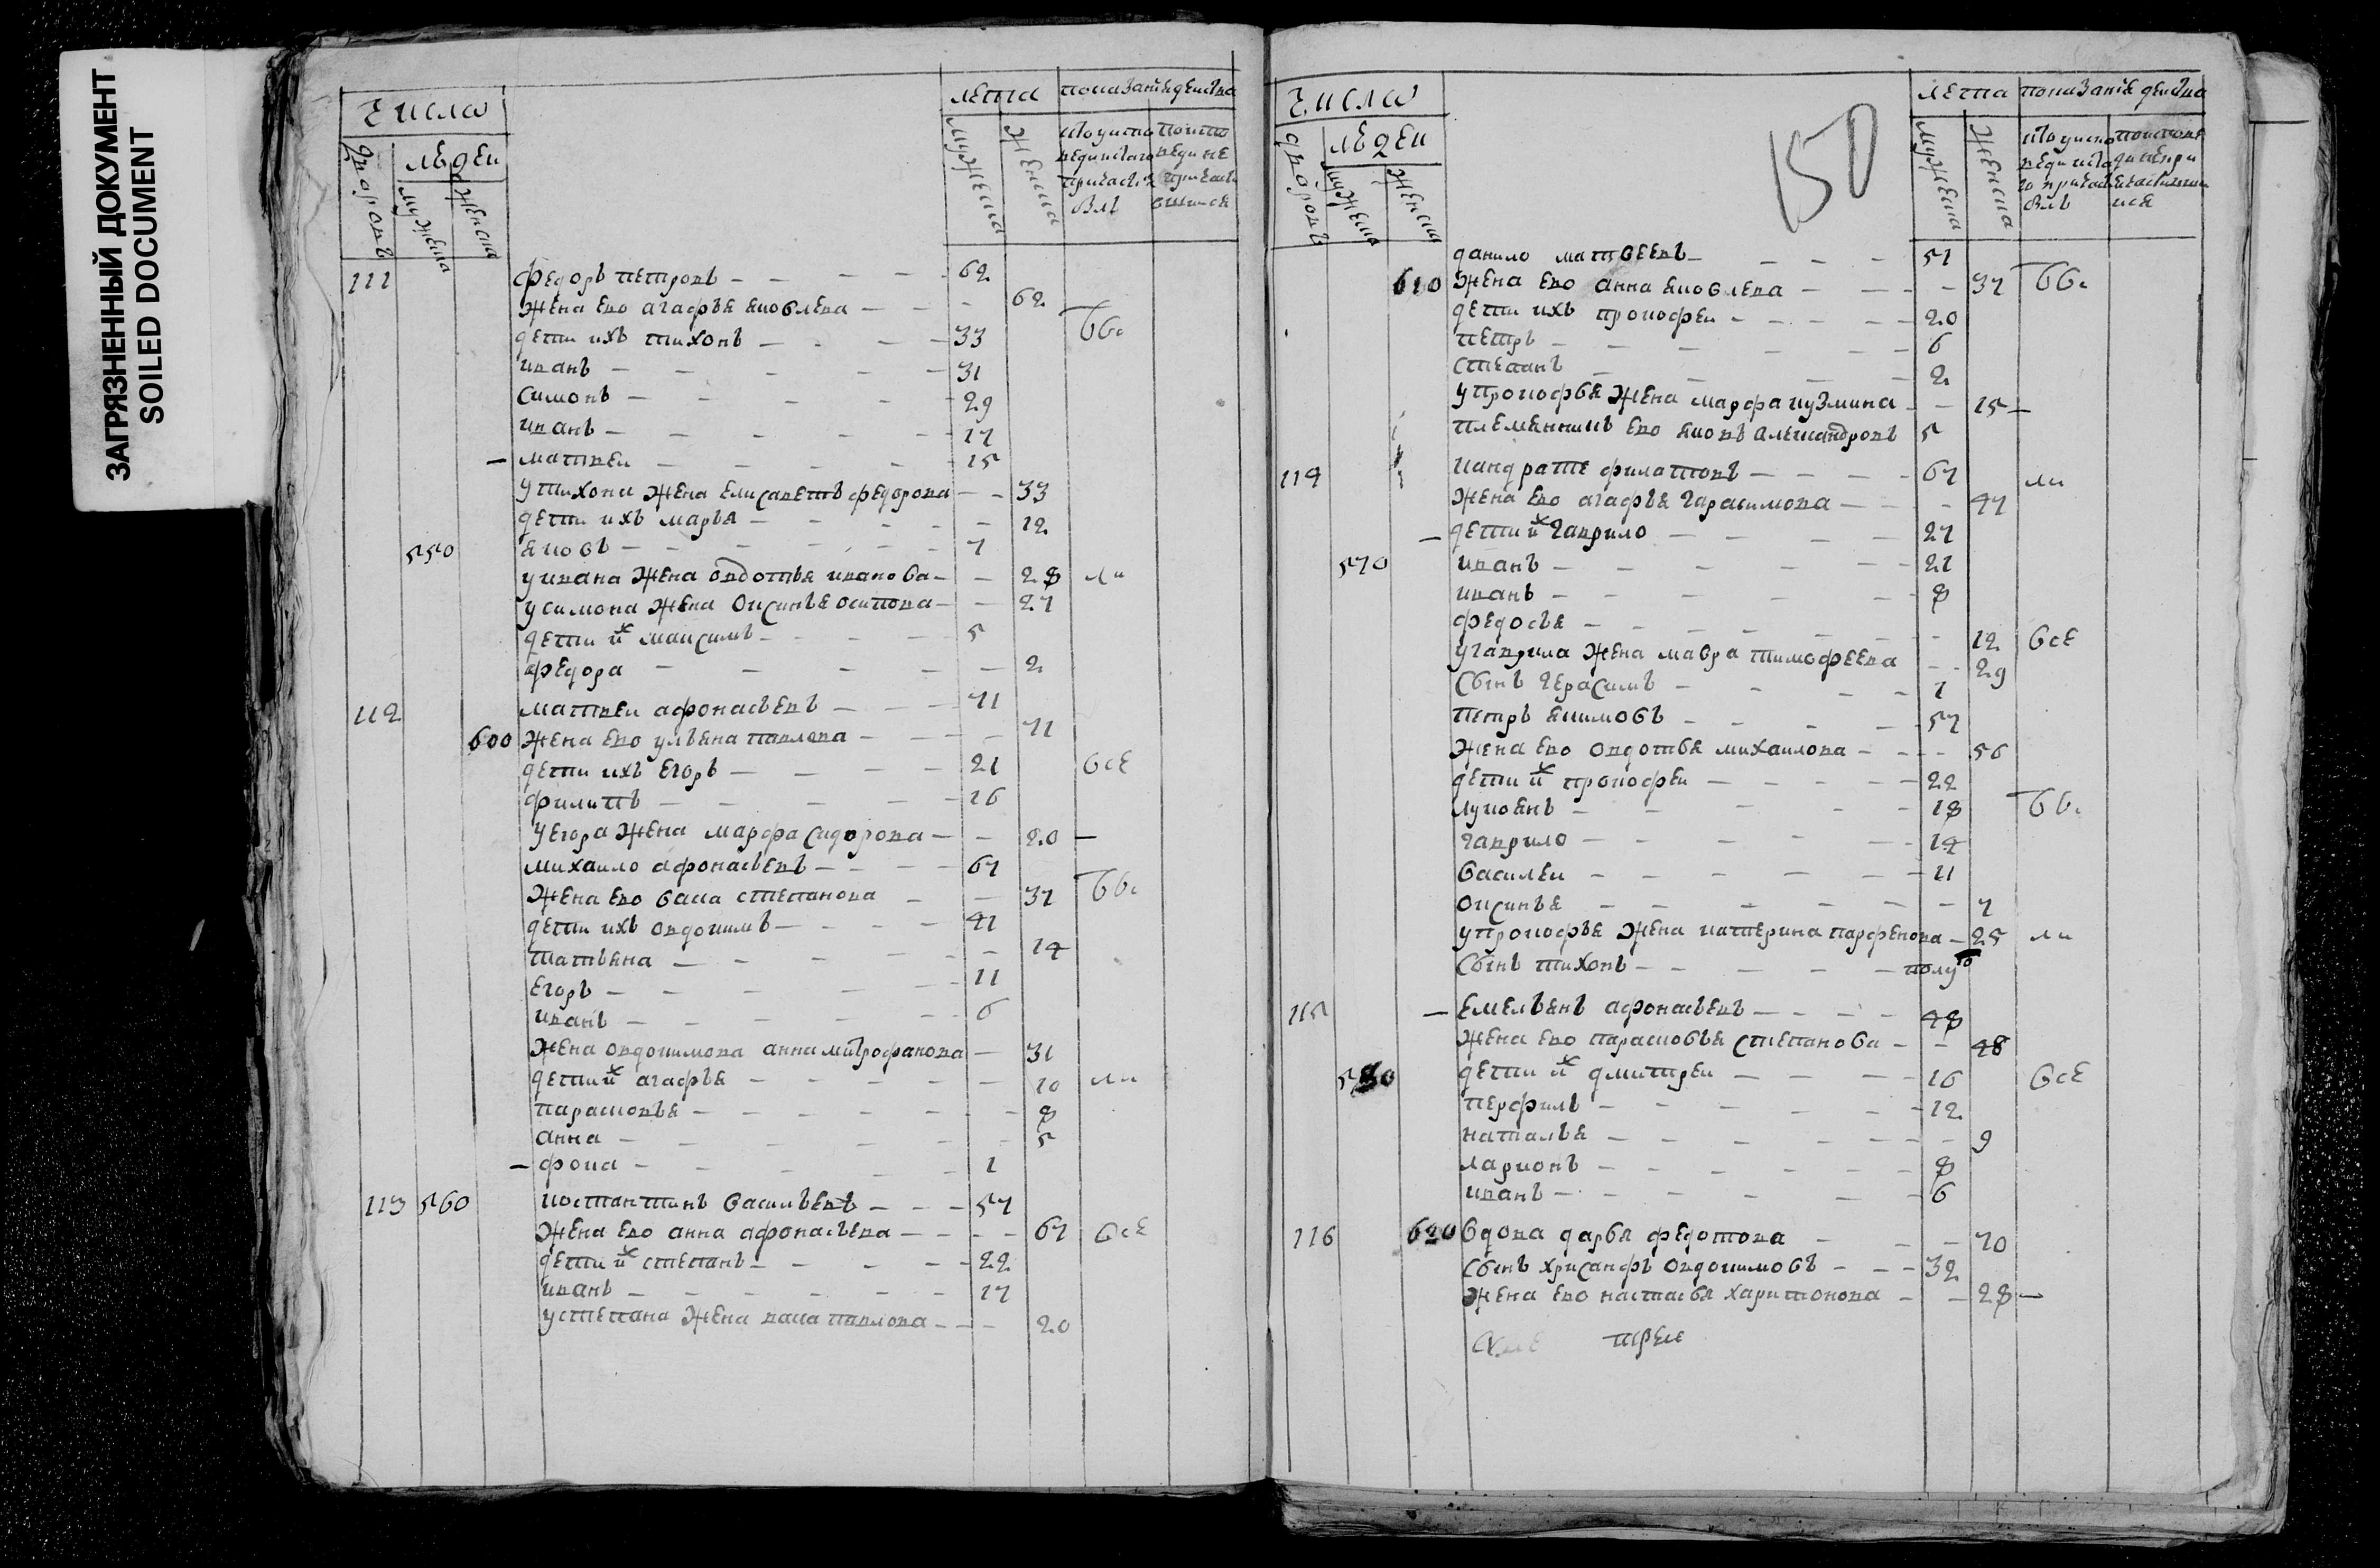 ЗАГРЯЗНЕННЫЙ ДОКУМЕНТ
SOILED DOCUMENT
число лета показание действа
дворовъ людеи мужеска женска
мужеска женска
111 федоръ петровъ 62
жена ево агафья яковлева 62
дети ихъ тихонъ 33
иванъ 31
симонъ 29
иванъ 17
матвеи 15
у тихона жена елисаветъ федорова 33
дети ихъ марья 12
550 яковъ 7
у ивана жена овдотья иванова 28
у симона жена оксинья осипова 27
дети их максимъ 5
федора 2
112 матвеи афонасьевъ 71
600 жена ево ульяна павлова 71
дети ихъ егоръ 21 все
филипъ 16
у егора жена марфа сидорова 20
михаило афонасьевъ 67
жена ево васа степанова 37
дети ихъ овдокимъ 41
татьяна 14
егоръ 11
иванъ 6
жена овдокимова анна митрофанова 31
дети их агафья 10
парасковья 8
анна 5
фока 1
113 560 костантинъ васильевъ 57
жена ево анна афонасьева 67 все
дети их степанъ 22
иванъ 17
у степана жена васа павлова 20
150
число лета показание действа
дворовъ людеи мужеска женска
мужеска женска
данило матвеевъ 51
610 жена ево анна яковлева 37
дети ихъ прокофеи 20
петръ 6
степанъ 2
у прокофья жена марфа кузмина 15
племянникъ ево яковъ александровъ 5
114 кандрате филатовъ 67
жена ево агафья гарасимова 47
дети их гаврило 27
570 иванъ 21
иванъ 8
федосья 12 все
у гаврила жена мавра тимофеева 29
сынъ герасимъ 1
петръ якимовъ 57
жена ево овдотья михаилова 56
дети их прокофеи 22
лукьянъ 18
гаврило 14
василеи 11
оксинья 7
у прокофья жена катерина парфенова 25
сынъ тихонъ полу
115 емельянъ афонасьевъ 48
жена ево парасковья степанова 48
580 дети их дмитреи 16 все
перфиль 12
наталья 9
ларионъ 8
иванъ 6
116 620 вдова дарья федотова 70
сынъ хрисанфъ овдокимовъ 32
жена ево настасья харитонова 28